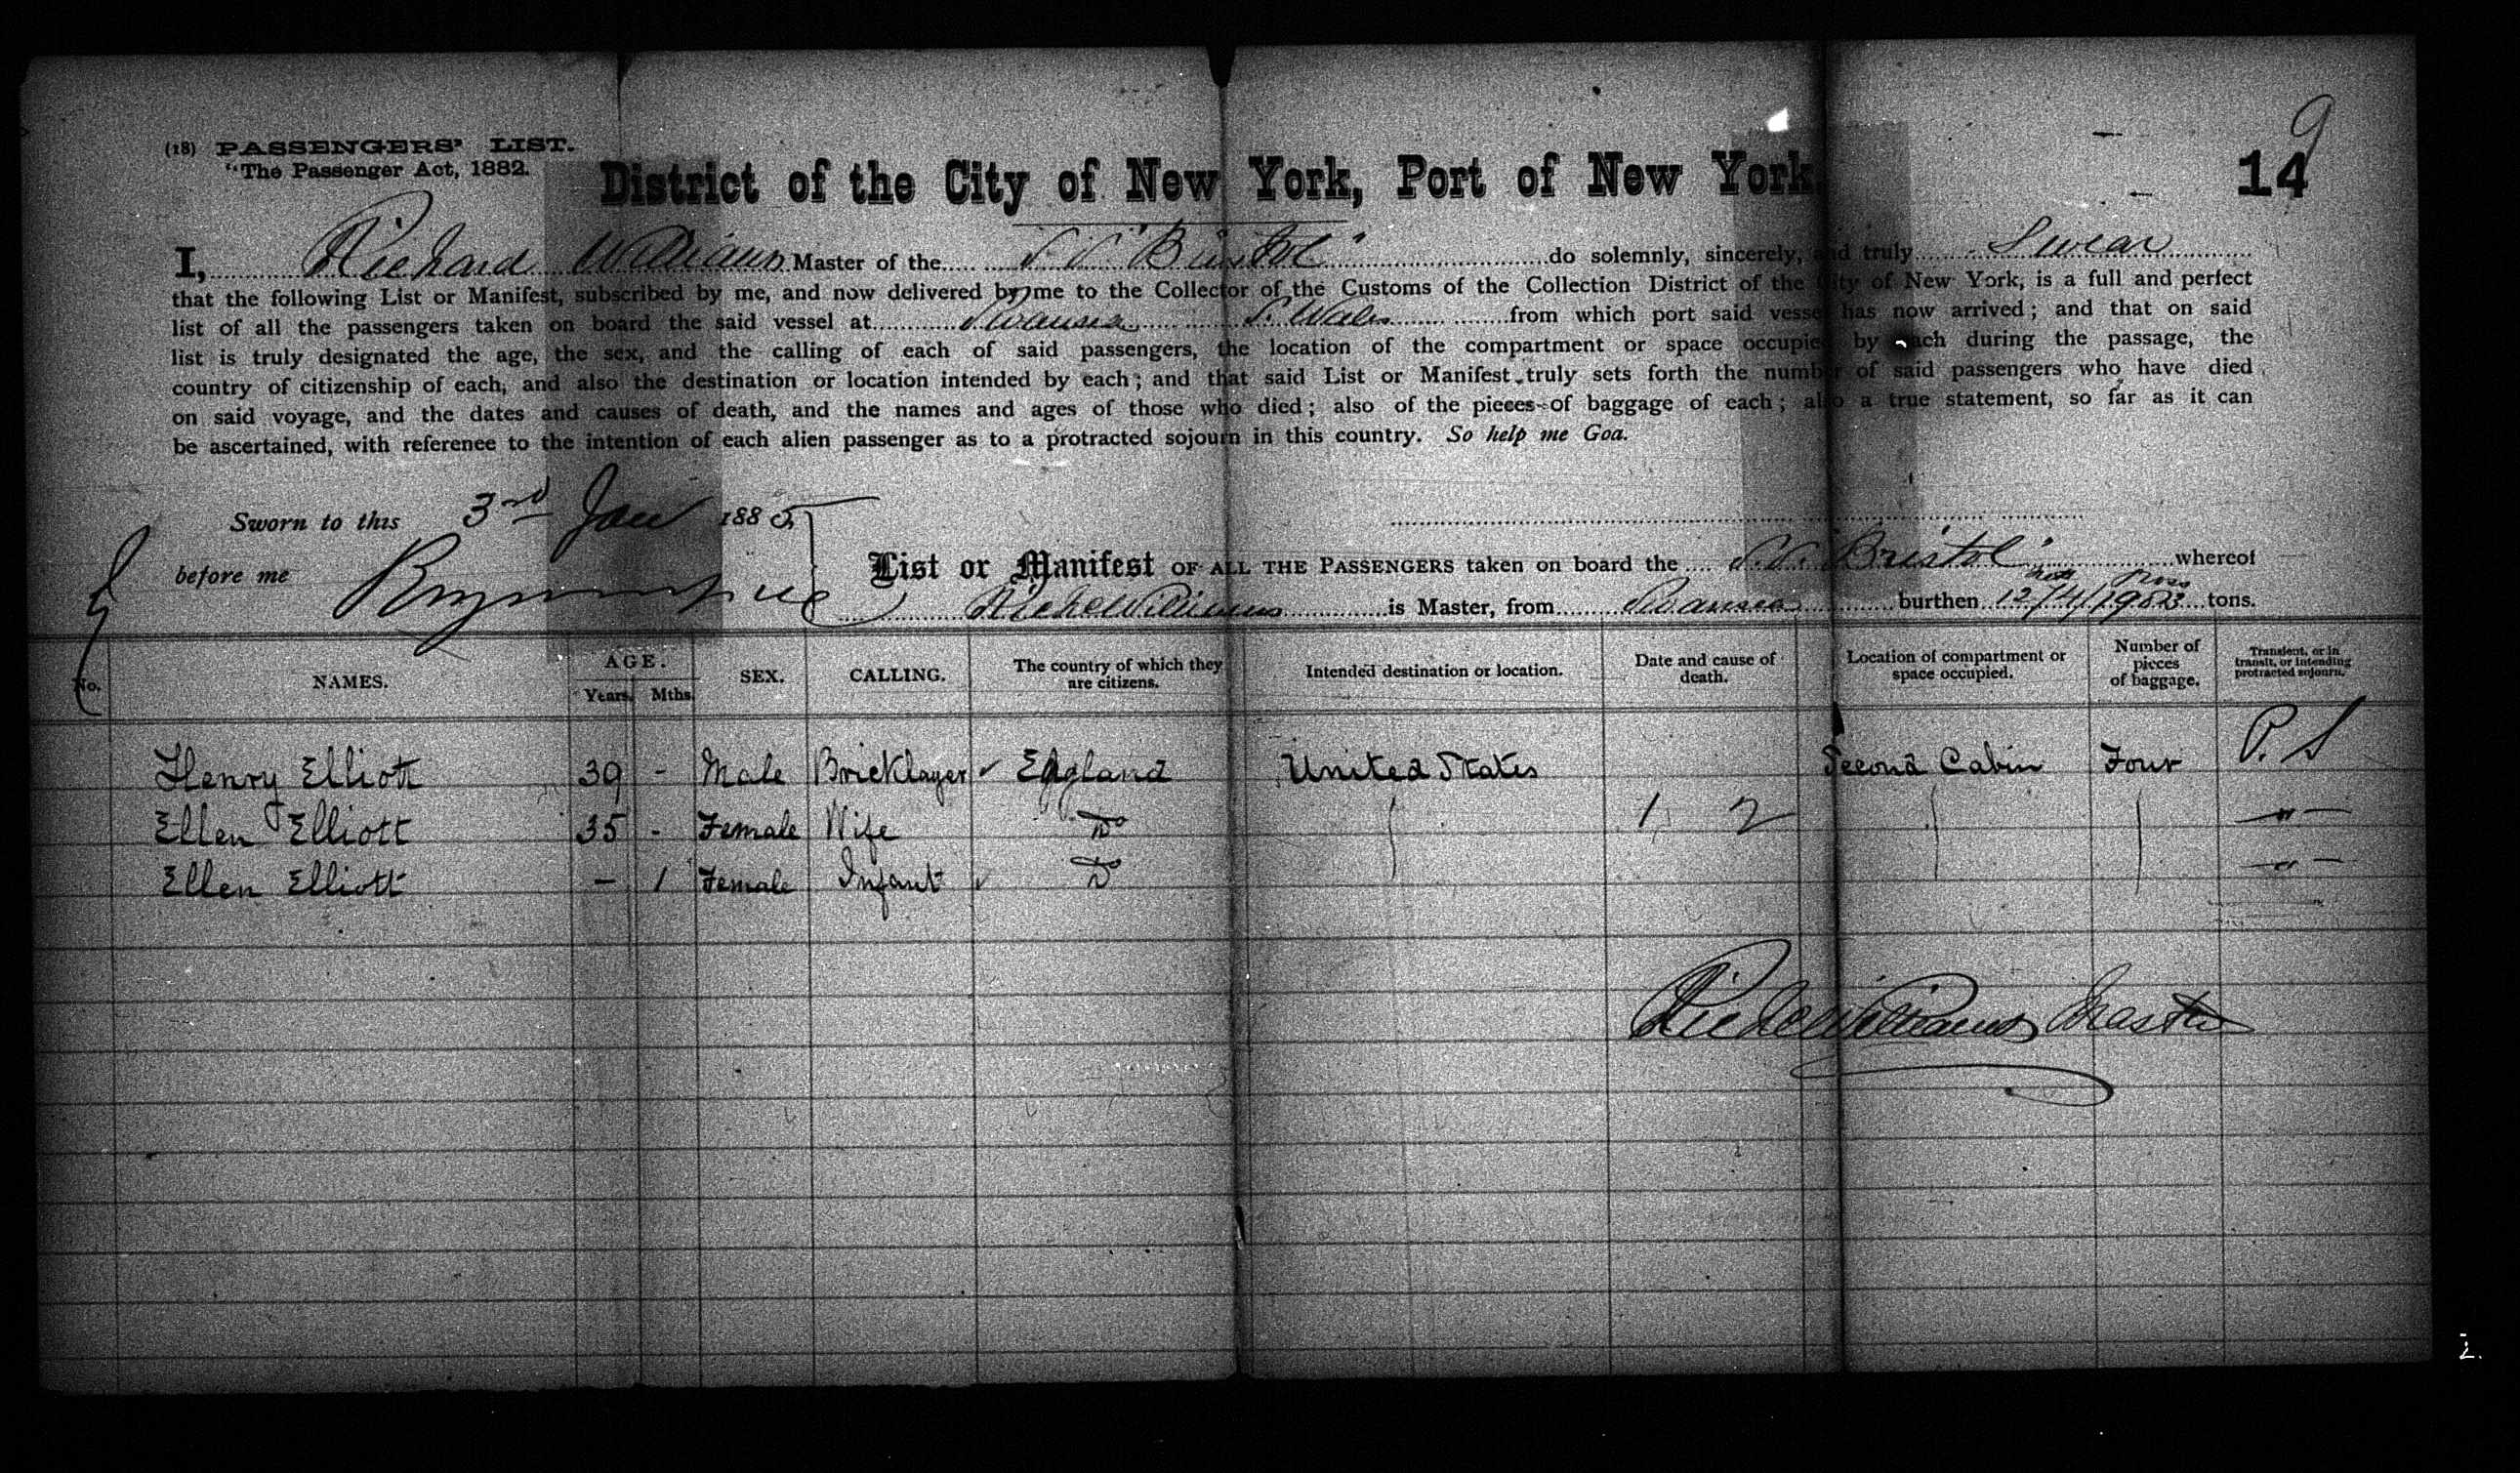 (18) PASSENGERS' LIST.
"The Passenger Act, 1882.
9
District of the City of New York, Port of New York
14
I, Richard Williams Master of the S.S. "Bristol" do solemnly, sincerely, and truly Swear
that the following List or Manifest, subscribed by me, and now delivered by me to the Collector of the Customs of the Collection District of the City of New York, is a full and perfect
list of all the passengers taken on board the said vessel at Swansea S. Wales from which port said vessel has now arrived; and that on said
list is truly designated the age, the sex, and the calling of each of said passengers, the location of the compartment or space occupied by each during the passage, the
country of citizenship of each, and also the destination or location intended by each; and that said List or Manifest truly sets forth the number of said passengers who have died
on said voyage, and the dates and causes of death, and the names and ages of those who died; also of the pieces of baggage of each; also a true statement, so far as it can
be ascertained, with reference to the intention of each alien passenger as to a protracted sojourn in this country. So help me God.
Sworn to this 3rd Jan 1885
before me
List or Manifest OF ALL THE PASSENGERS taken on board the S.S. "Bristol" whereof
Richd Williams is Master, from Swansea burthen tons.
No. NAMES. AGE. Years. Mths. SEX. CALLING. The country of which they are citizens. Intended destination or location. Date and cause of death. Location of compartment or space occupied. Number of pieces of baggage. Transient, or in transit, or intending protracted sojourn.
Henry Elliott 39 - Male Bricklayer England United States Second Cabin Four P. S
Ellen Elliott 35 - Female Wife Do 1 2 "
Ellen Elliott - 1 Female Infant Do "
Richd Williams Master